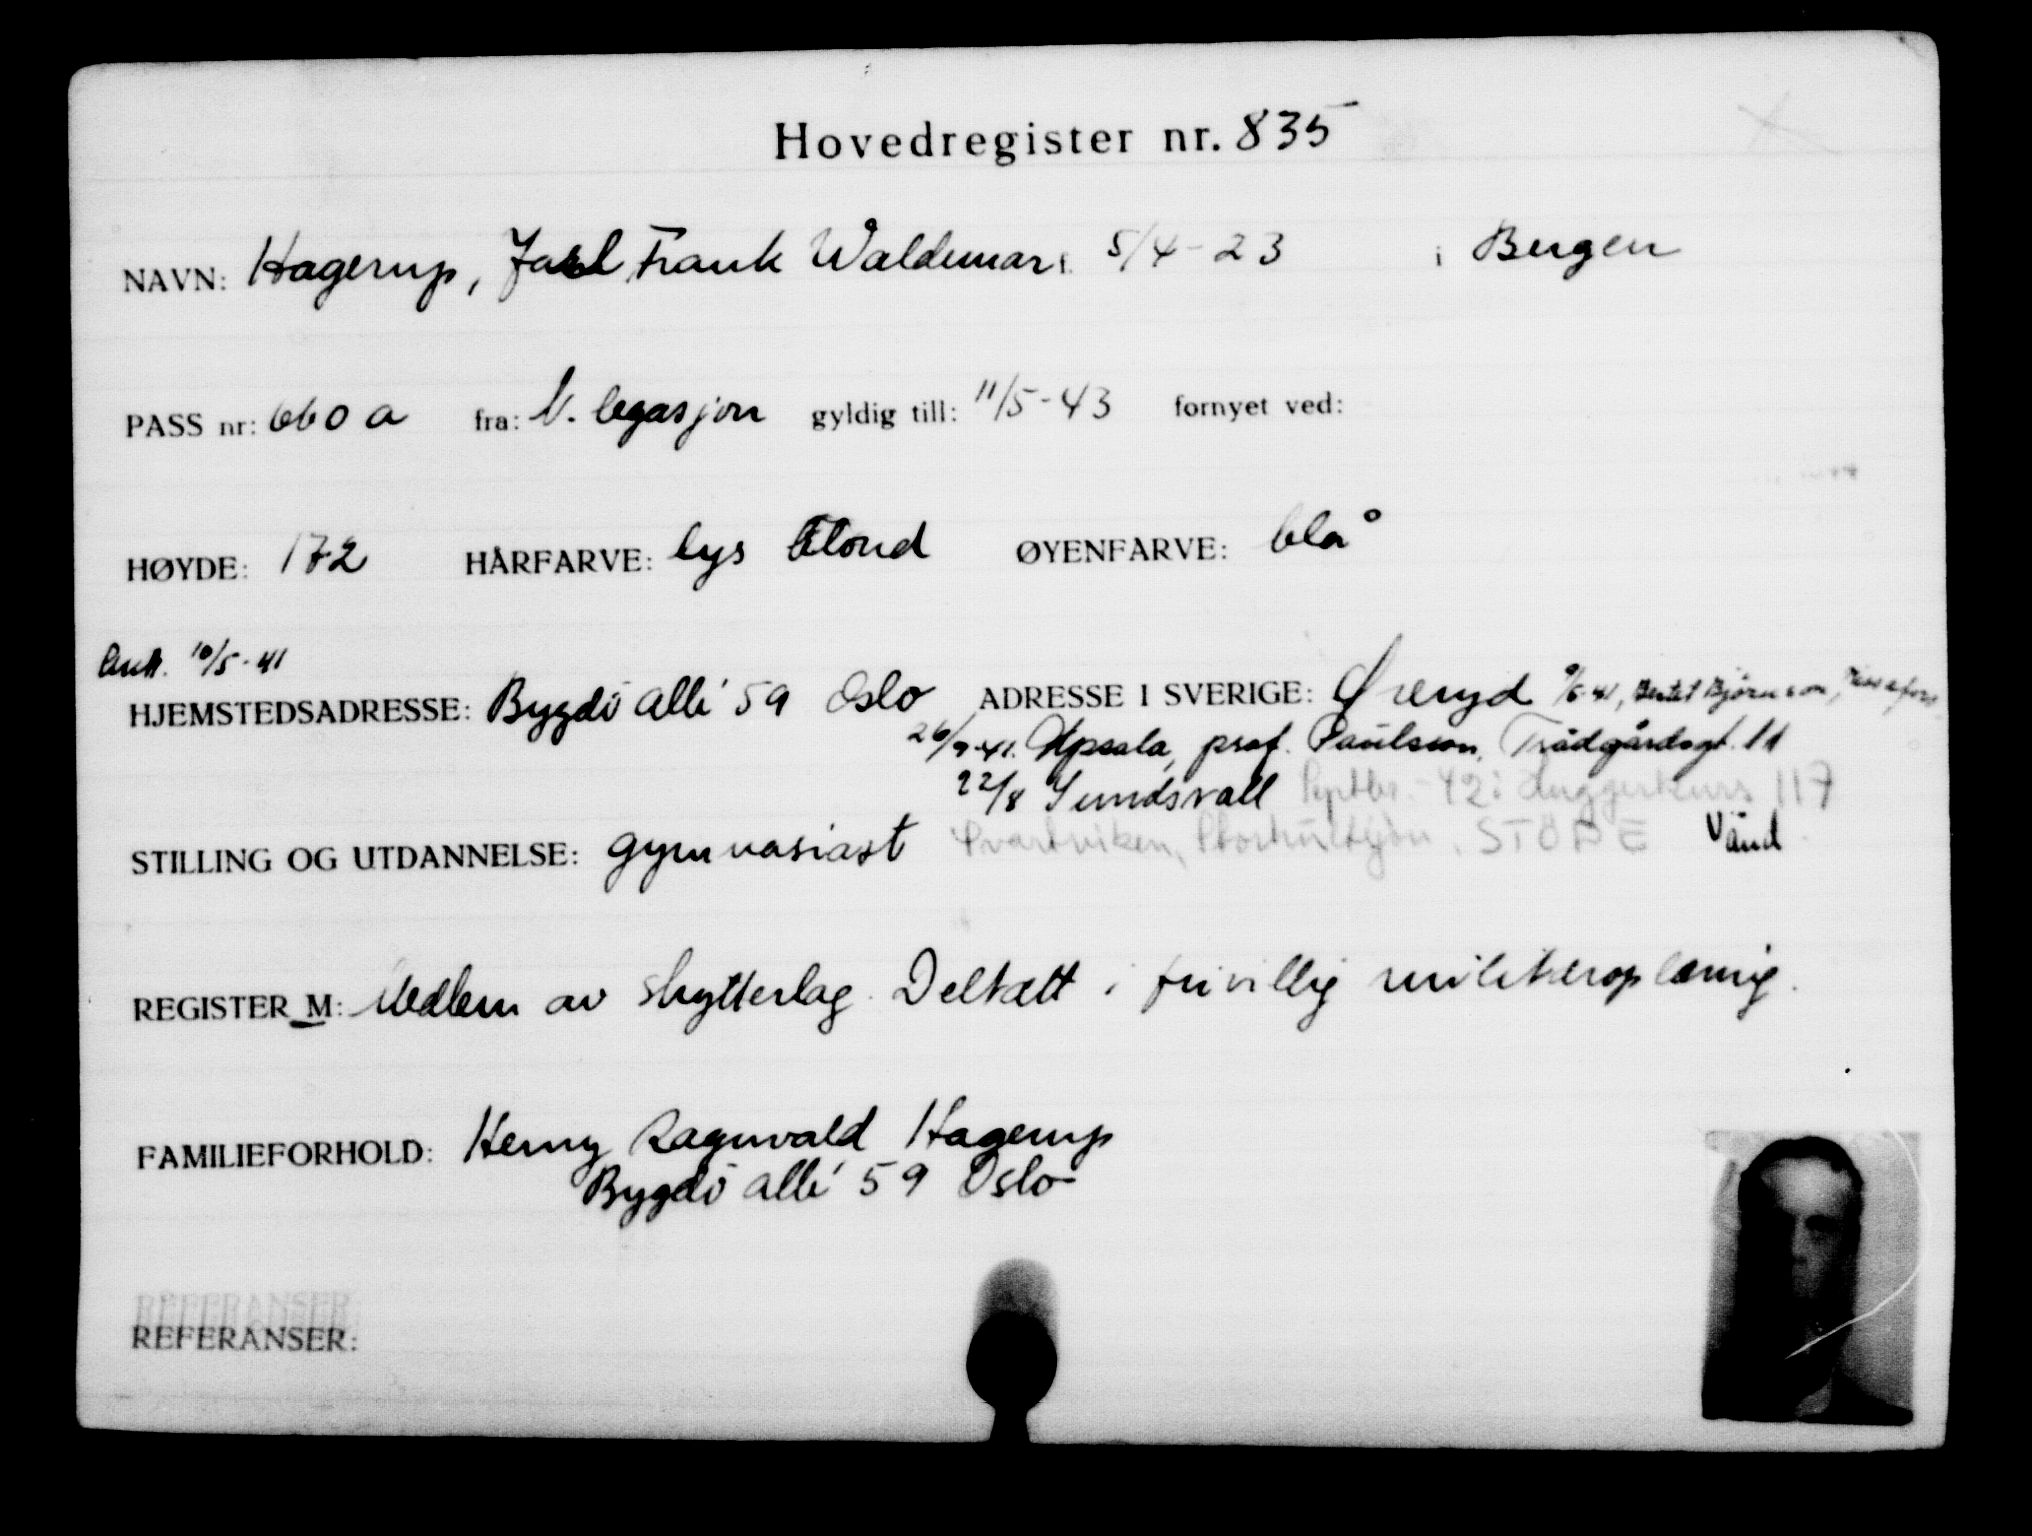 Hovedregister nr. 835
NAVN: Hagerup, Jarl Frank Waldemar f. 5/4-23 i Bergen
PASS nr: 660 a fra: N. legasjon gyldig till: 11/5-43 fornyet ved:
HØYDE: 172 HÅRFARVE: lys blond ØYENFARVE: blå
Ank. 10/5-41
HJEMSTEDSADRESSE: Bygdö allé 59 Oslo ADRESSE I SVERIGE: Öreryd 9/6-41, Bertel Björnson,
26/9-41. Upsala, prof. Paulsson, Trädgårdsgt. 11
22/8 Sundsvall Septbr. -42: Huggerkurs 117
STILLING OG UTDANNELSE: gymnasiast Svartviken, STÖDE Vänd
REGISTER M: Medlem av skytterlag. Deltatt i frivillig militæroplæring.
FAMILIEFORHOLD: Henry Ragnvald Hagerup
Bygdö allé 59 Oslo
REFERANSER
REFERANSER: